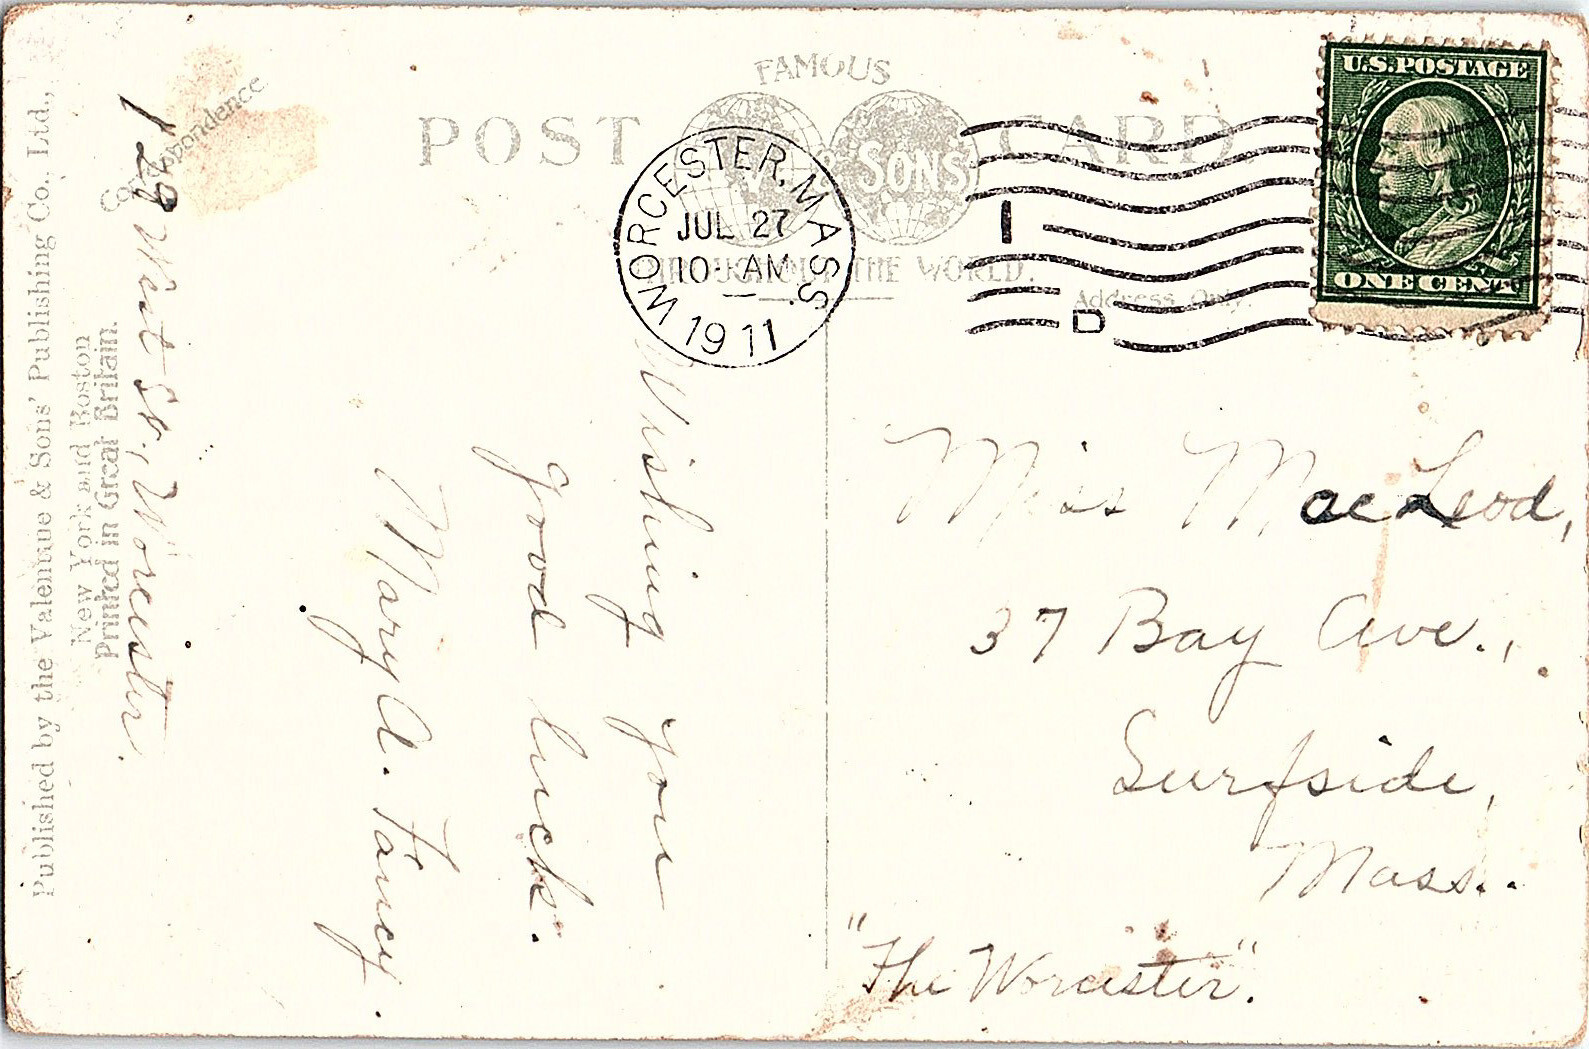 FAMOUS
POST CARD
V. & SONS
THROUGHOUT THE WORLD.
Address Only.
Correspondence
U.S. POSTAGE
ONE CENT
WORCESTER, MASS.
JUL 27
10- AM
1911
1
D
Miss MacLeod,
37 Bay Ave.,
Surfside,
Mass.
"The Worcester".
Wishing you
good luck.
Mary A. Fancy.
129 West St., Worcester.
Published by the Valentine & Sons' Publishing Co., Ltd.,
New York and Boston
Printed in Great Britain.